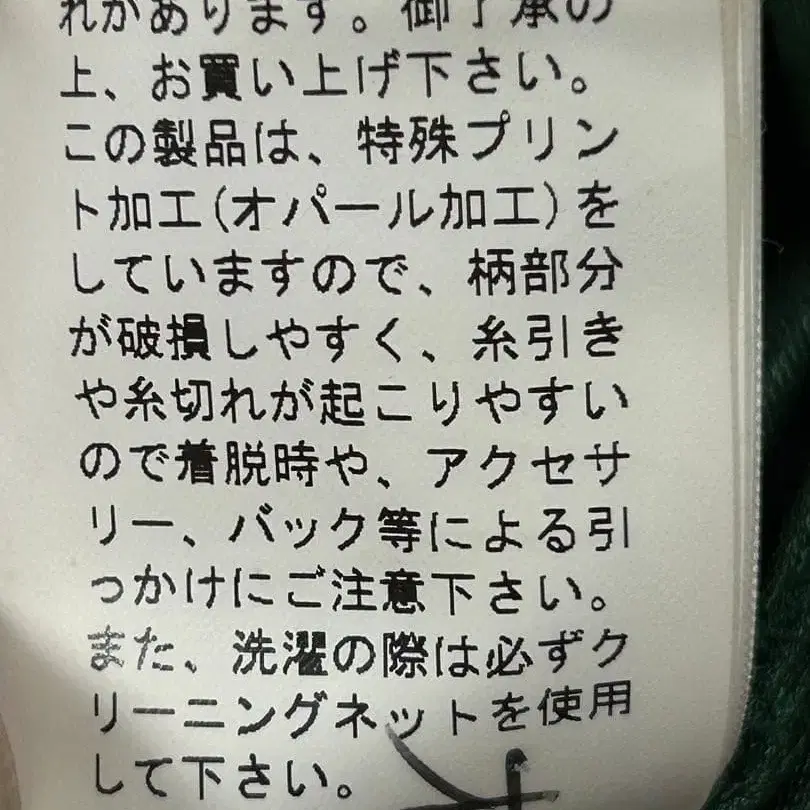 れがあります。御了承の
上、お買い上げ下さい。
この製品は、特殊プリン
ト加工(オパール加工)を
していますので、柄部分
が破損しやすく、糸引き
や糸切れが起こりやすい
ので着脱時や、アクセサ
リー、バック等による引
っかけにご注意下さい。
また、洗濯の際は必ずク
リーニングネットを使用
して下さい。